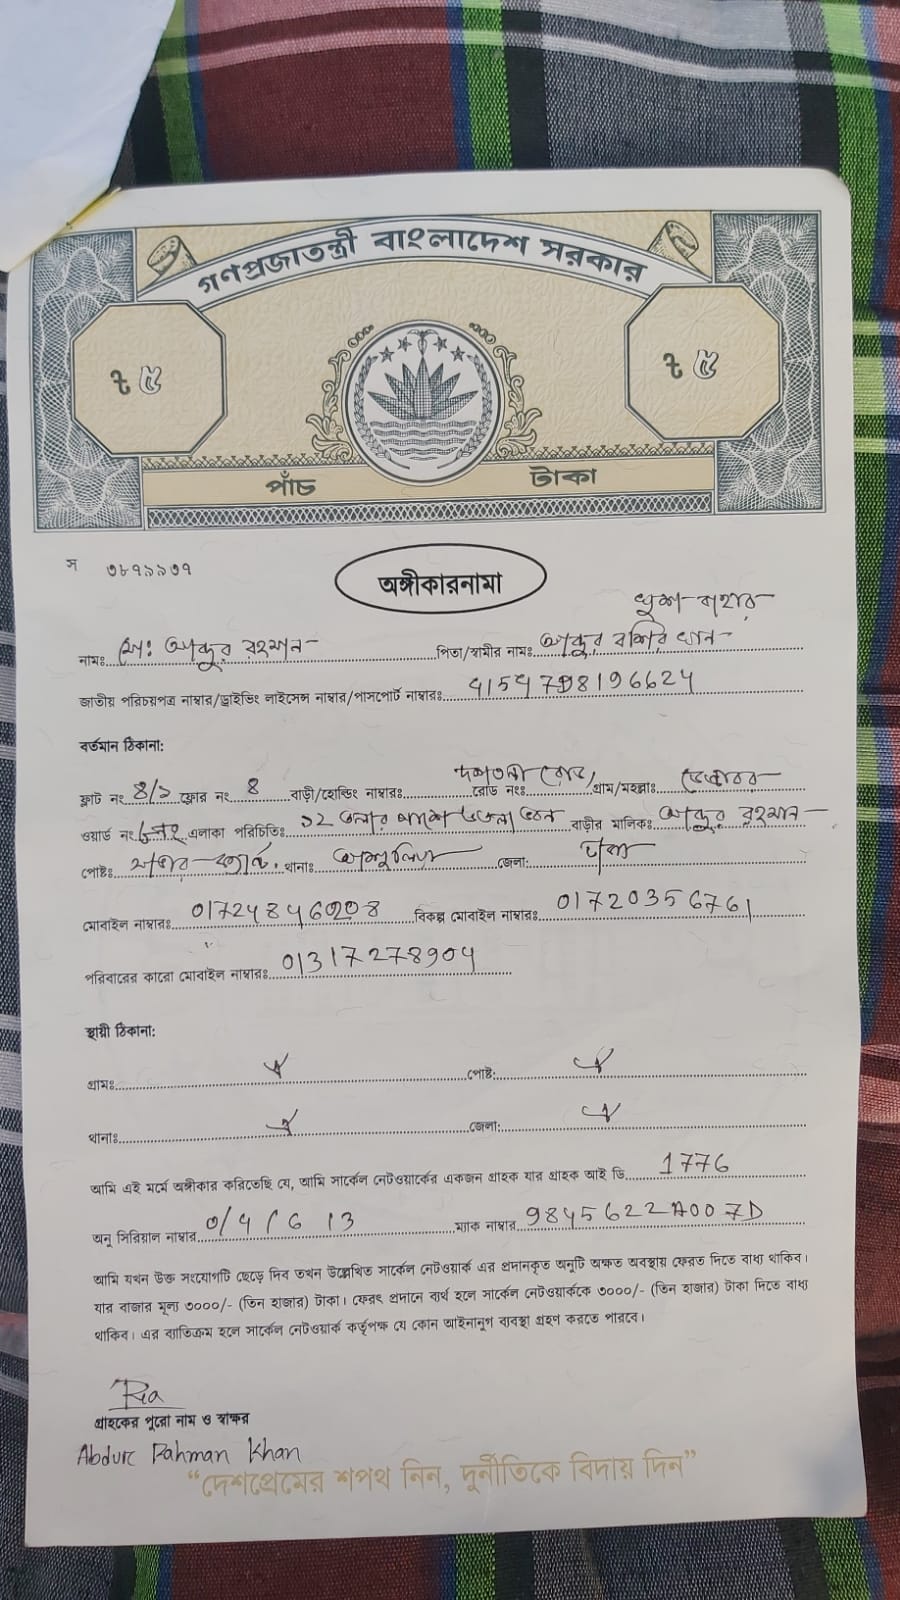 গণপ্রজাতন্ত্রী বাংলাদেশ সরকার
ট ৫ ট ৫
পাঁচ টাকা
স ৩৮৭৯৯৩৭
অঙ্গীকারনামা
নামঃ মোঃ আব্দুর রহমান পিতা/স্বামীর নামঃ আব্দুর রশিদ খান
জাতীয় পরিচয়পত্র নাম্বার/ড্রাইভিং লাইসেন্স নাম্বার/পাসপোর্ট নাম্বারঃ
বর্তমান ঠিকানা:
ফ্লাট নং ৪/১ ফ্লোর নং ৪ বাড়ী/হোল্ডিং নাম্বারঃ রোড নংঃ গ্রাম/মহল্লাঃ
ওয়ার্ড নং এলাকা পরিচিতিঃ ১২ তলার পাশে ৬তলা ভবন বাড়ীর মালিকঃ আব্দুর রহমান
পোষ্টঃ থানাঃ আশুলিয়া জেলা: ঢাকা
মোবাইল নাম্বারঃ বিকল্প মোবাইল নাম্বারঃ 01720356761
পরিবারের কারো মোবাইল নাম্বারঃ 01317278904
স্থায়ী ঠিকানা:
গ্রামঃ পোষ্ট:
থানাঃ জেলা:
আমি এই মর্মে অঙ্গীকার করিতেছি যে, আমি সার্কেল নেটওয়ার্কের একজন গ্রাহক যার গ্রাহক আই ডি 1776
অনু সিরিয়াল নাম্বার ম্যাক নাম্বার 9845622A007D
আমি যখন উক্ত সংযোগটি ছেড়ে দিব তখন উল্লেখিত সার্কেল নেটওয়ার্ক এর প্রদানকৃত অনুটি অক্ষত অবস্থায় ফেরত দিতে বাধ্য থাকিব।
যার বাজার মূল্য ৩০০০/- (তিন হাজার) টাকা। ফেরৎ প্রদানে ব্যর্থ হলে সার্কেল নেটওয়ার্ককে ৩০০০/- (তিন হাজার) টাকা দিতে বাধ্য
থাকিব। এর ব্যতিক্রম হলে সার্কেল নেটওয়ার্ক কর্তৃপক্ষ যে কোন আইনানুগ ব্যবস্থা গ্রহণ করতে পারবে।
Ria
গ্রাহকের পুরো নাম ও স্বাক্ষর
Abdur Rahman Khan
“দেশপ্রেমের শপথ নিন, দুর্নীতিকে বিদায় দিন”